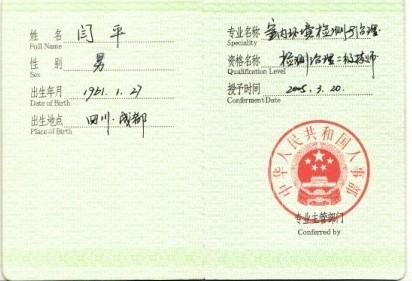 姓名 闫平
Full Name
性别 男
Sex
出生年月 1961.1.27
Date of Birth
出生地点 四川.成都
Place of Birth
专业名称 室内环境检测与治理
Speciality
资格名称 检测治理二级技师
Qualification Level
授予时间 2005.3.20.
Conferment Date
中华人民共和国人事部
专业主管部门
Conferred by